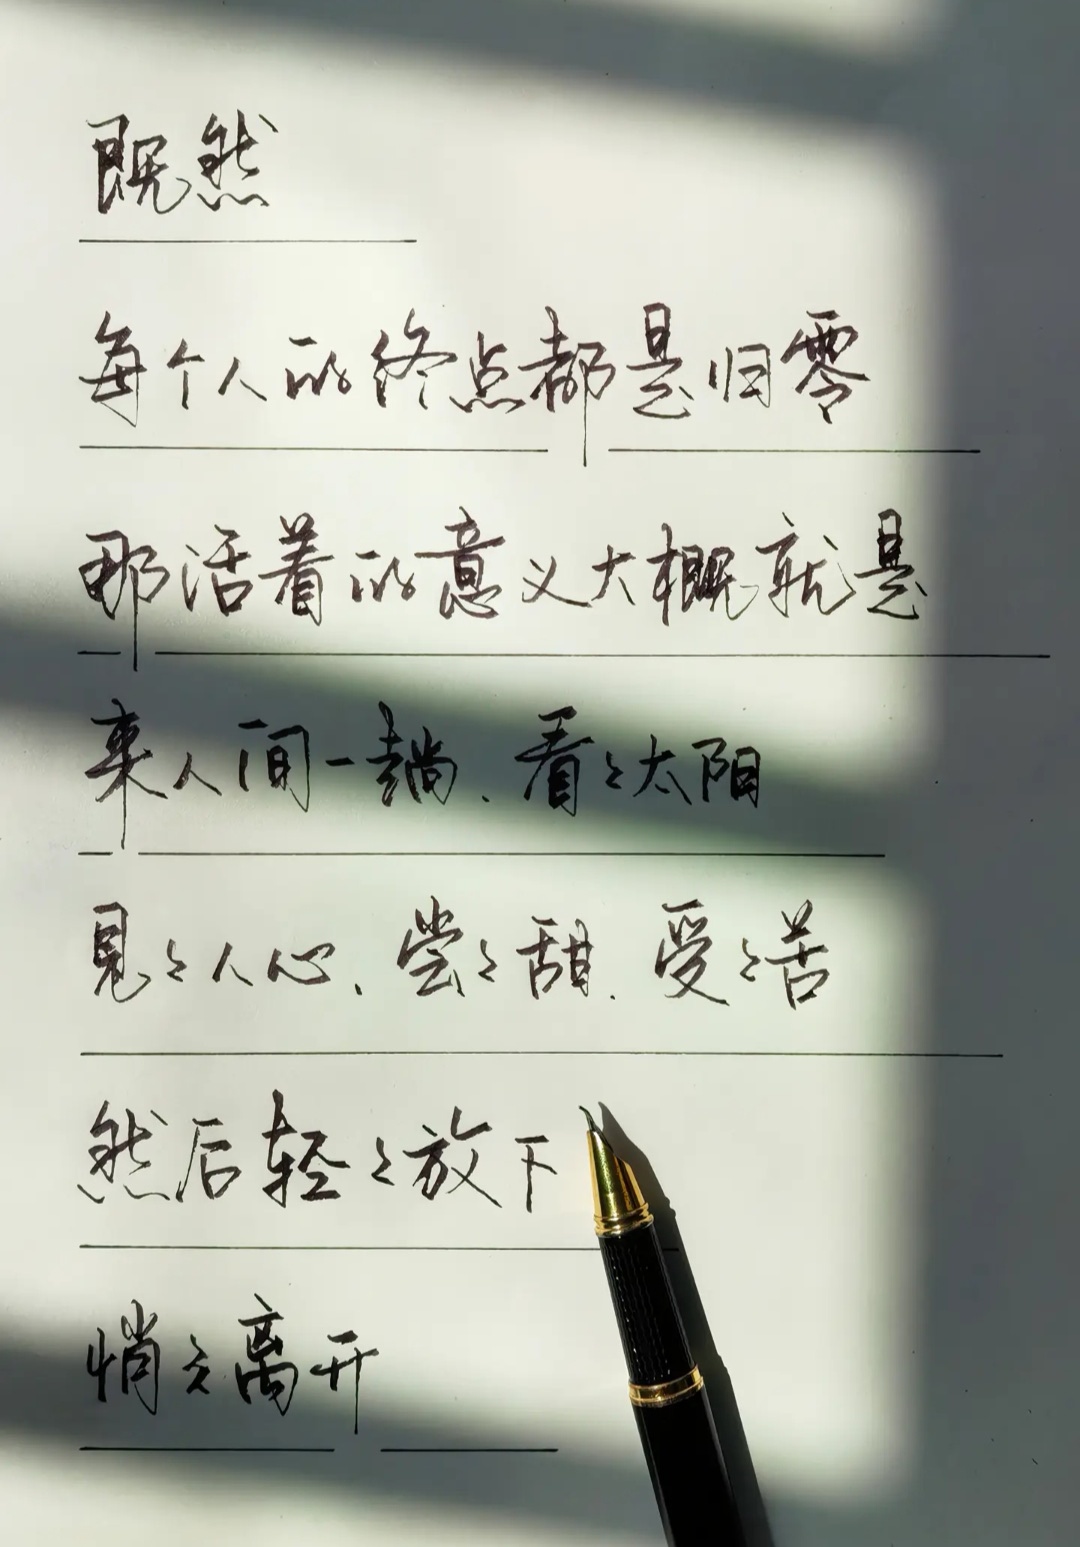 既然
每个人的终点都是归零
那活着的意义大概就是
来人间一趟、看々太阳
見々人心、尝々甜、受々苦
然后轻々放下
悄々离开